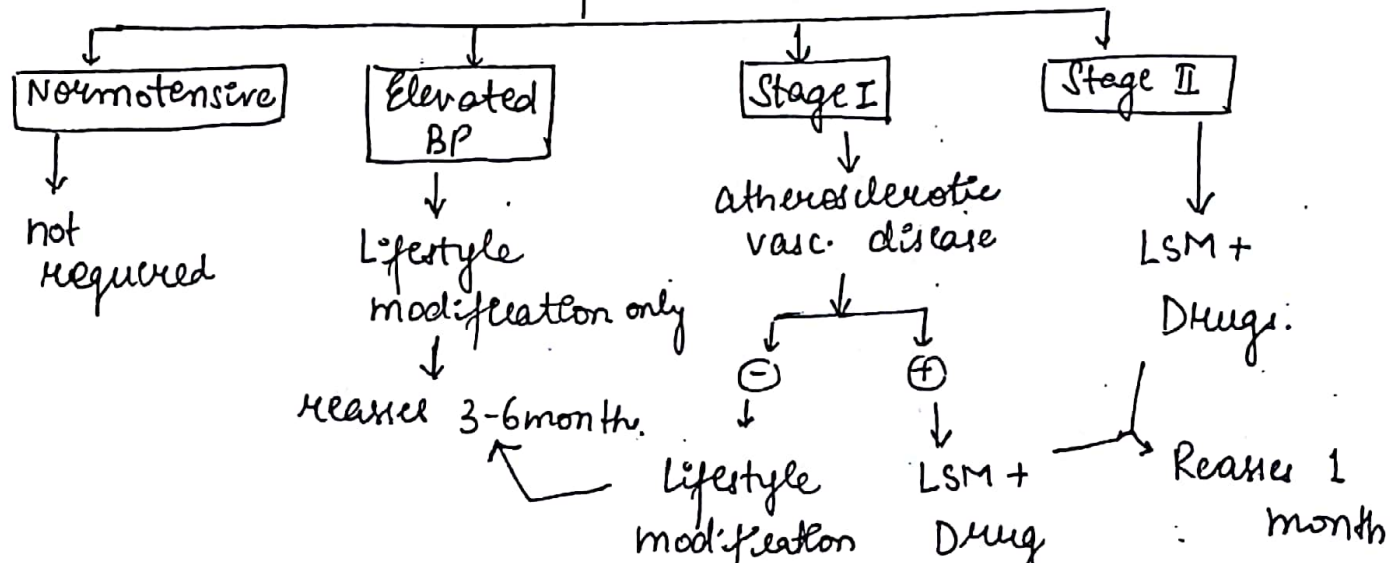 Normotensive
not
required
Elevated
BP
Lifestyle
modification only
reasses 3-6 month.
Stage I
atherosclerotic
vasc. disease
-
Lifestyle
modification
+
LSM +
Drug
Stage II
LSM +
Drugs.
Reasses 1
month